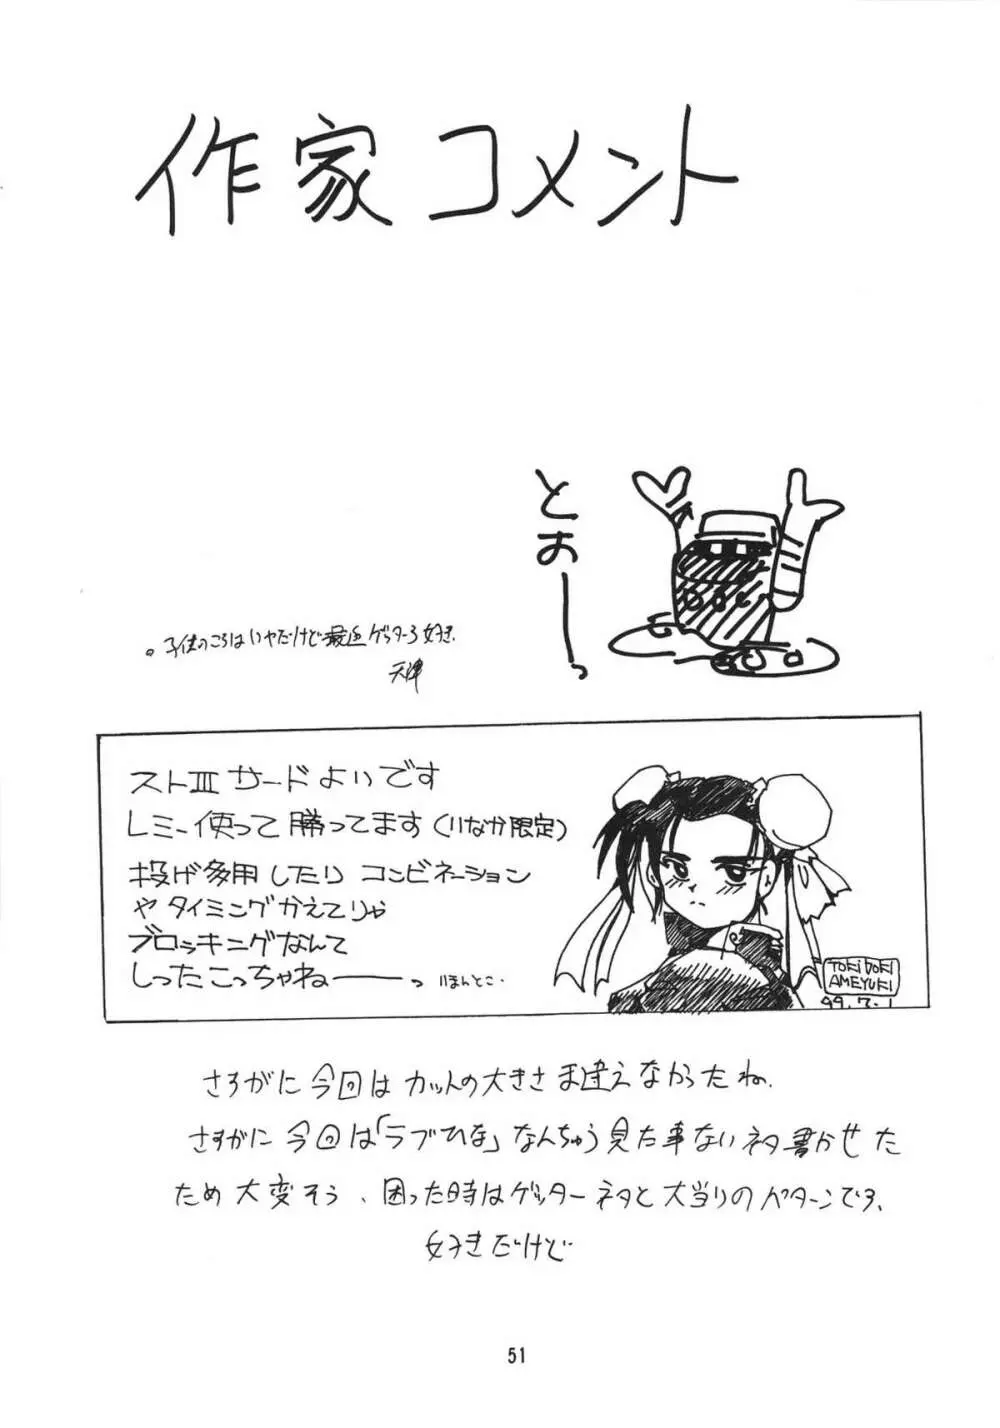 作家コメント
とおーっ
。子供のころはいやだけど最近ゲッター3好き。
天津
ストⅢサードよいです
レミー使って勝ってます(いなか限定)
投げ多用したり コンビネーション
や タイミングかえてりゃ
ブロッキングなんて
しったこっちゃねーーっ ほんとこ。
TOKIDOKI
AMEYUKI
99.7.1
さすがに今回はカットの大きさま違えなかったね。
さすがに今回は「ラブひな」なんちゅう見た事ないネタ書かせた
ため大変そう、困った時はゲッターネタと大当りのパターンです。
好きだけど
51